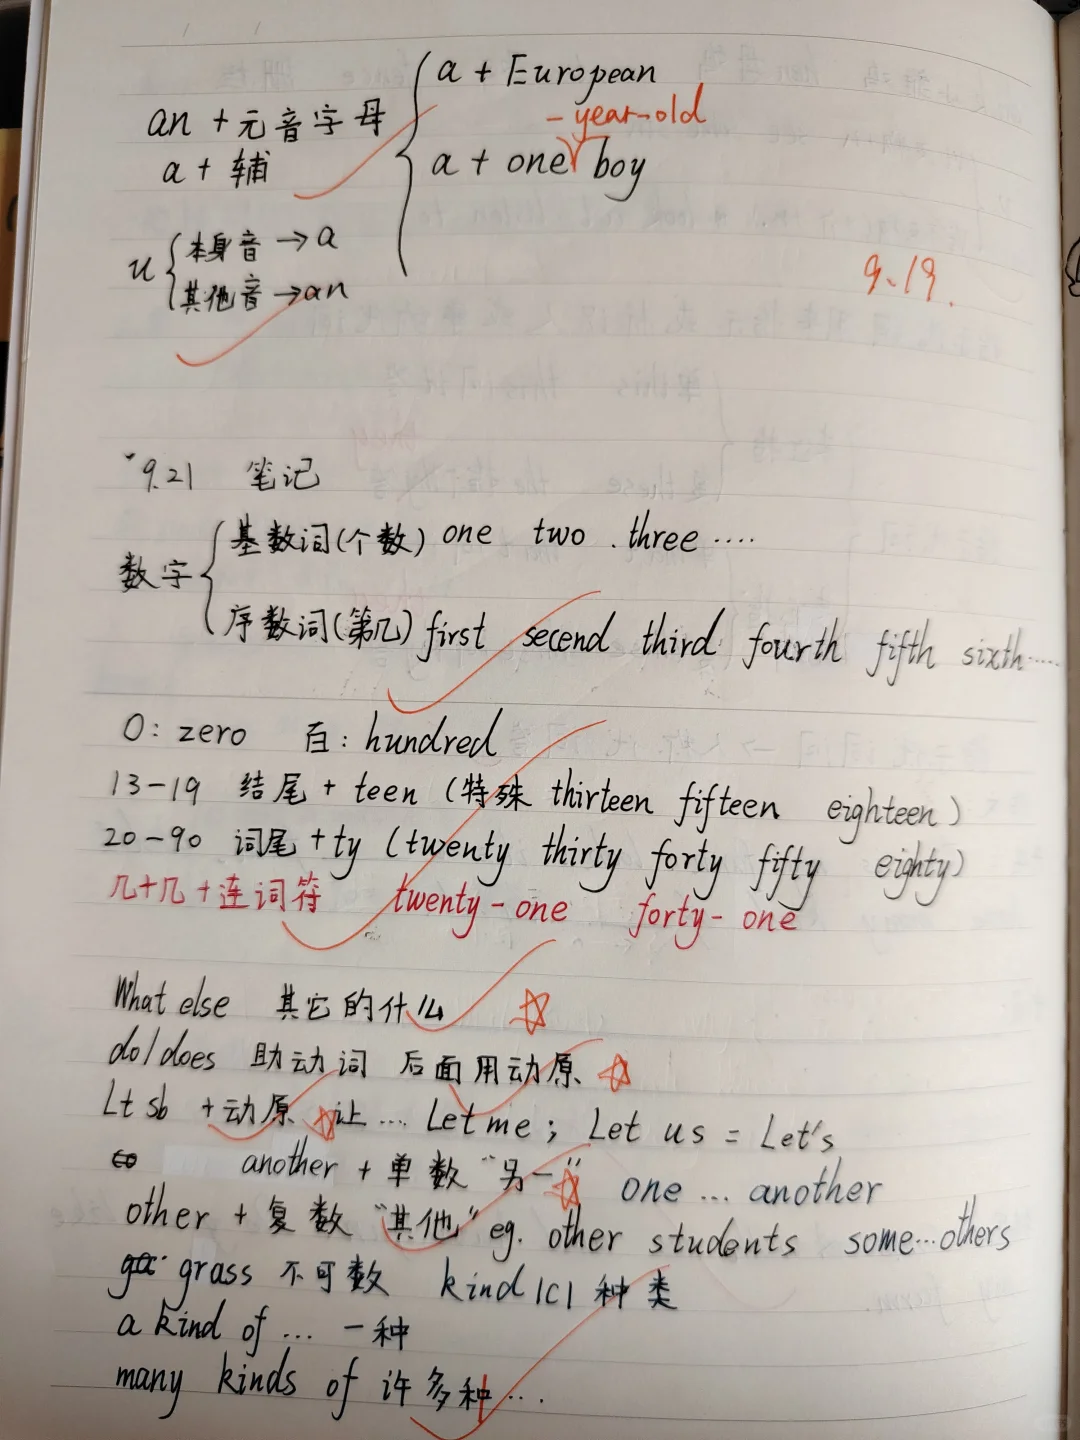 a + European
an +元音字母
- year-old
a + 辅
a + one boy
u
本身音 → a
其他音 → an
9.19.
9.21 笔记
数字
基数词(个数) one two .three ····
序数词(第几) first secend third fourth fifth sixth·····
0: zero 百: hundred
13-19 结尾 + teen (特殊 thirteen fifteen eighteen)
20-90 词尾 + ty (twenty thirty forty fifty eighty)
几+几+连词符 twenty-one forty-one
What else 其它的什么
do/does 助动词 后面用动原
Lt sb +动原 让 ... Let me ; Let us = Let's
another + 单数 "另一" one ... another
other + 复数 "其他" eg. other students some...others
grass 不可数 kind [C] 种类
a kind of ... 一种
many kinds of 许多种 ...